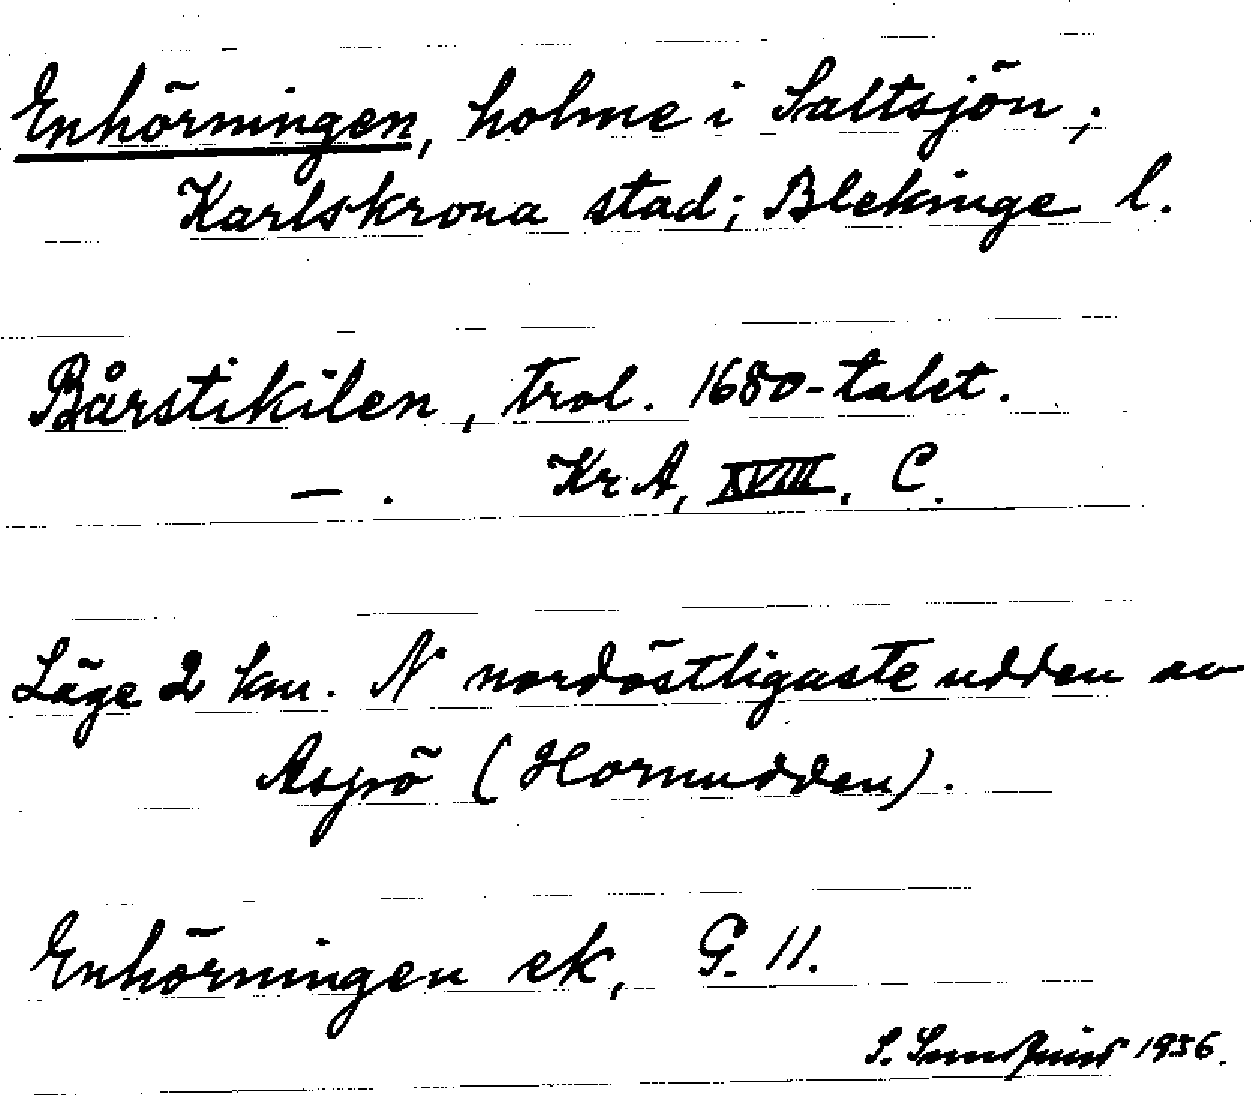 Enhörningen, holme i Saltsjön;
Karlskrona stad; Blekinge l.
Bårstikilen, trol. 1680-talet.
— . Kr A, XVIII, C.
Läge 2 km. N nordöstligaste udden av
Aspö (Hornudden).
Enhörningen ek, G. 11.
S. 1956.